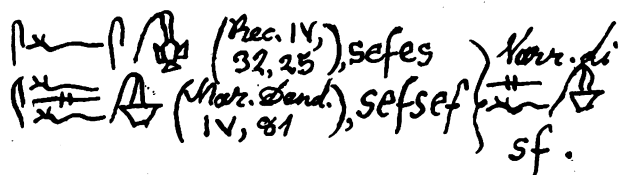 (Rec. IV,
32, 25), sefes
(Mar. Dend.
IV, 81), sefsef
Varr. di
sf.